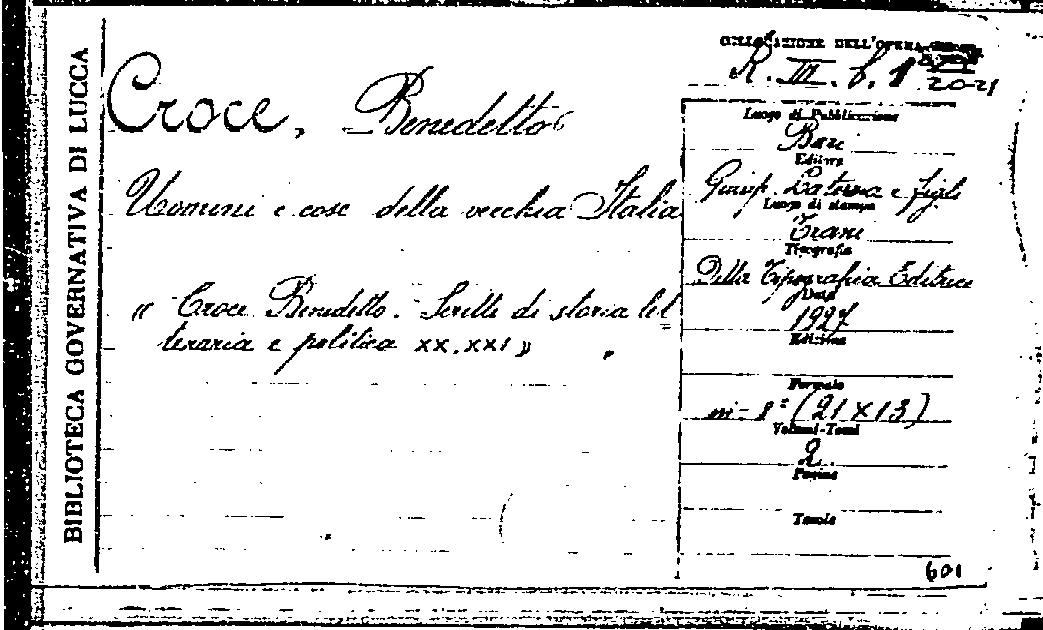 BIBLIOTECA GOVERNATIVA DI LUCCA
Croce, Benedetto
Uomini e cose della vecchia Italia
« Croce Benedetto. Scritti di storia let
teraria e politica XX.XXI »
COLLOCAZIONE DELL'OPERA
R. III. b. 1
20-21
Luogo di Pubblicazione
Bari
Editore
Giusep. Laterza e figli
Luogo di stampa
Trani
Tipografia
Della Tipografia Editrice
Data
1927
Edizione
Formato
in-8° (21 x 13)
Volumi-Tomi
2.
Pagine
Tavole
601